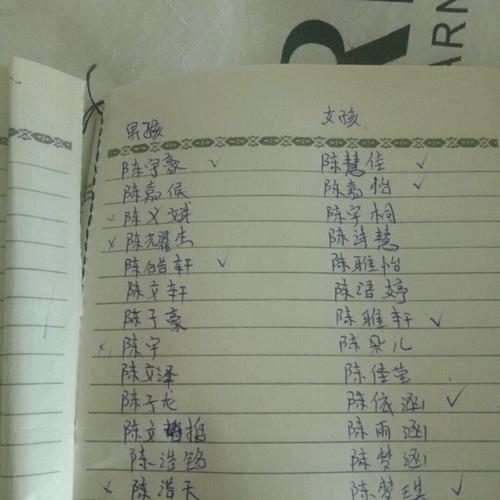 R
ARN
男孩 女孩
陈宇豪 ✓ 陈慧佳 ✓
陈嘉俊 陈嘉怡 ✓
× 陈文斌 陈宇桐
× 陈耀杰 陈诗慧
陈皓轩 ✓ 陈雅怡
陈文轩 陈语婷
陈子豪 陈雅轩 ✓
× 陈宇 陈朵儿
陈文泽 陈佳莹
陈子龙 陈依涵 ✓
陈文 陈雨涵
陈浩铭 陈梦涵
× 陈浩天 陈梦瑶 ✓